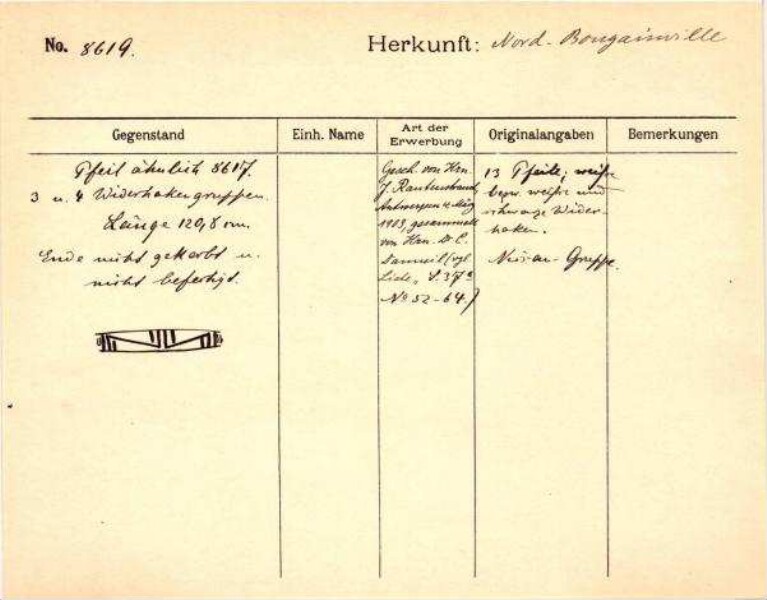 No. 8619.
Herkunft: Nord-Bougainville
Gegenstand
Einh. Name
Art der Erwerbung
Originalangaben
Bemerkungen
Pfeil ähnlich 8617.
3 u. 4 Widerhakengruppen.
Länge 120,8 cm.
Ende nicht gekerbt u.
nicht befestigt.
Gesch. von Hrn.
J. Rautenstrauch,
Antwerpen März
1903, gesammelt
von Hrn. Dr. C.
(vgl.
Liste, S. 37
No 52-64.)
13 Pfeile; weiße
bezw. weiße und
schwarze Wider-
haken.
Nissan-Gruppe.